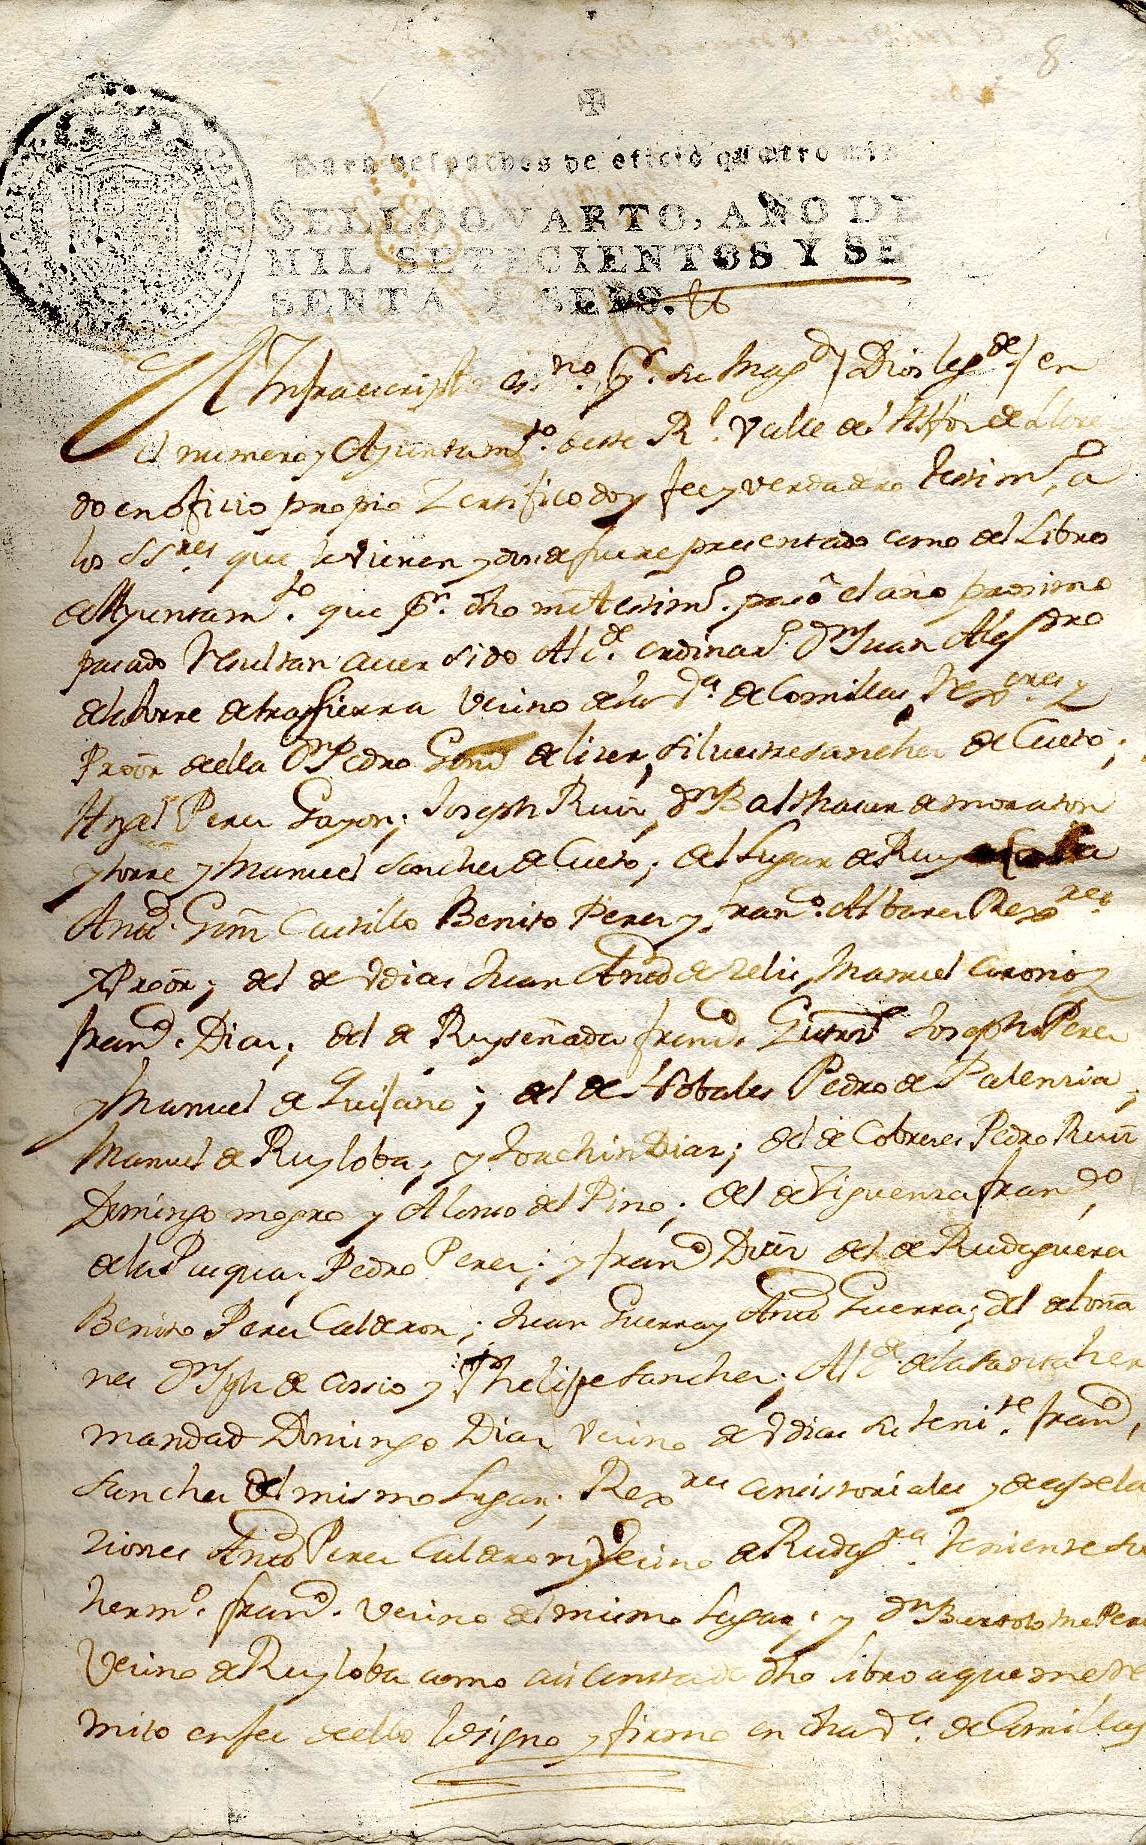 8
Para despachos de oficio quatro mrs
SELLO QVARTO, AÑO DE
MIL SETECIENTOS Y SE
SENTA Y SEIS. 66
Infraescripto essno pr. su Magd / Dios lege de / en
el numero y Ayuntamto. deste Rl. Valle de Alfoz de Llore
do en oficio propio Zertifico doy fee y verdadero testimo. a
los SSres que le vieren y donde fuere presentado como del Libro
de Ayuntamto. que pr. dho mi testimo. pasó el año proximo
pasado resultan aver sido Alcde. ordinaro. Dn Juan Alejdro
de la torre de trassierra Vecino de la Va. de Comillas, Rexores y
Procor de ella Dn Pedro Gonz de liter, Silvestre Sanchez de Cueto;
Angel Perez Gayon; Joseph Ruiz, Dn Balthasar de moraton
y torre y Manuel Sanchez de Cueto; del Lugar de Ruyloba
Anto. Gom Castillo Benito Perez y franco. Albarez Rexores
y Procor; del de Vdias Juan Anto de Zelis, Manuel
franco. Diaz; del de Ruyseñada franco. Gutrrz Joseph Perez
y Manuel de Quijano; del de Nobales Pedro de Palenzia,
Manuel de Ruyloba; y Joachin Diaz; del de Cobrezes Pedro Ruiz
Domingo mogro y Alonso del Pino; del de Ziguenza franco,
de la Pasqua, Pedro Perez; y franco Diaz del de Rudaguera
Benito Perez Calderon; Juan Guerra y Anto Guerra; del de loña
nes Dn Jph de cossio y Phelipe Sanchez; Alcde de la santa her
mandad Domingo Diaz Vecino de Vdias su tenite. franco,
Sanchez del mismo Lugar; Rexores consistoriales y de apela
ziones Anto Perez Calderon Vecino de Rudagra. teniente su
hermo. franco. Vecino del mismo Lugar; y Dn Bartolome Perez
Vecino de Ruyloba como asi consta de dho libro a que me re
mito en fee de ello lo signo y firmo en dha Va. de Comillas